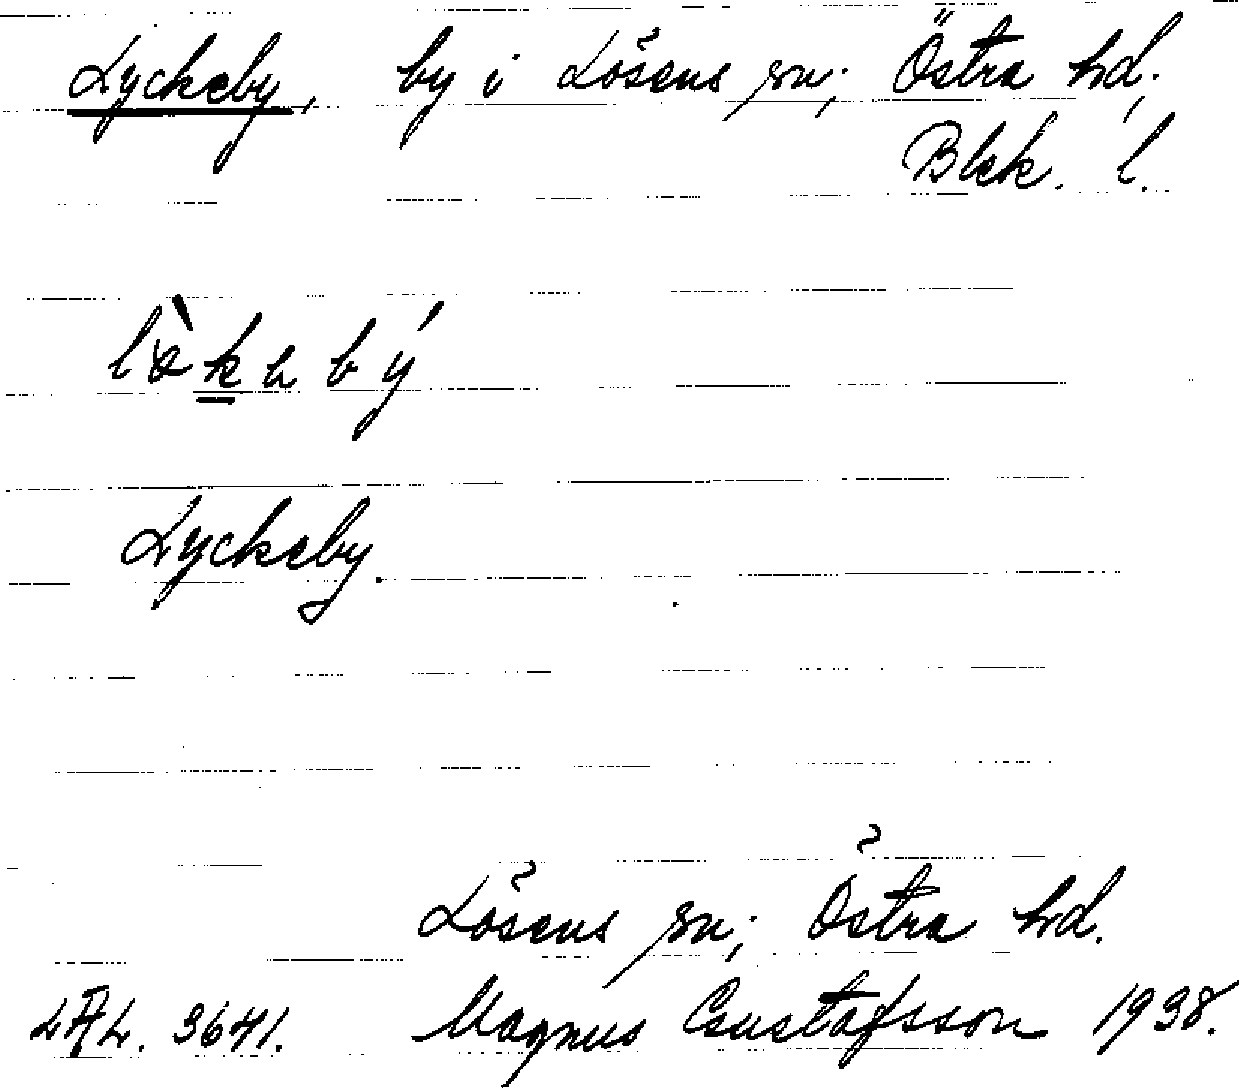 Lyckeby, by i Lösens sn; Östra hd,
Blek. l.
Lyckeby.
Lösens sn; Östra hd.
LAL. 3641. Magnus Gustafsson 1938.